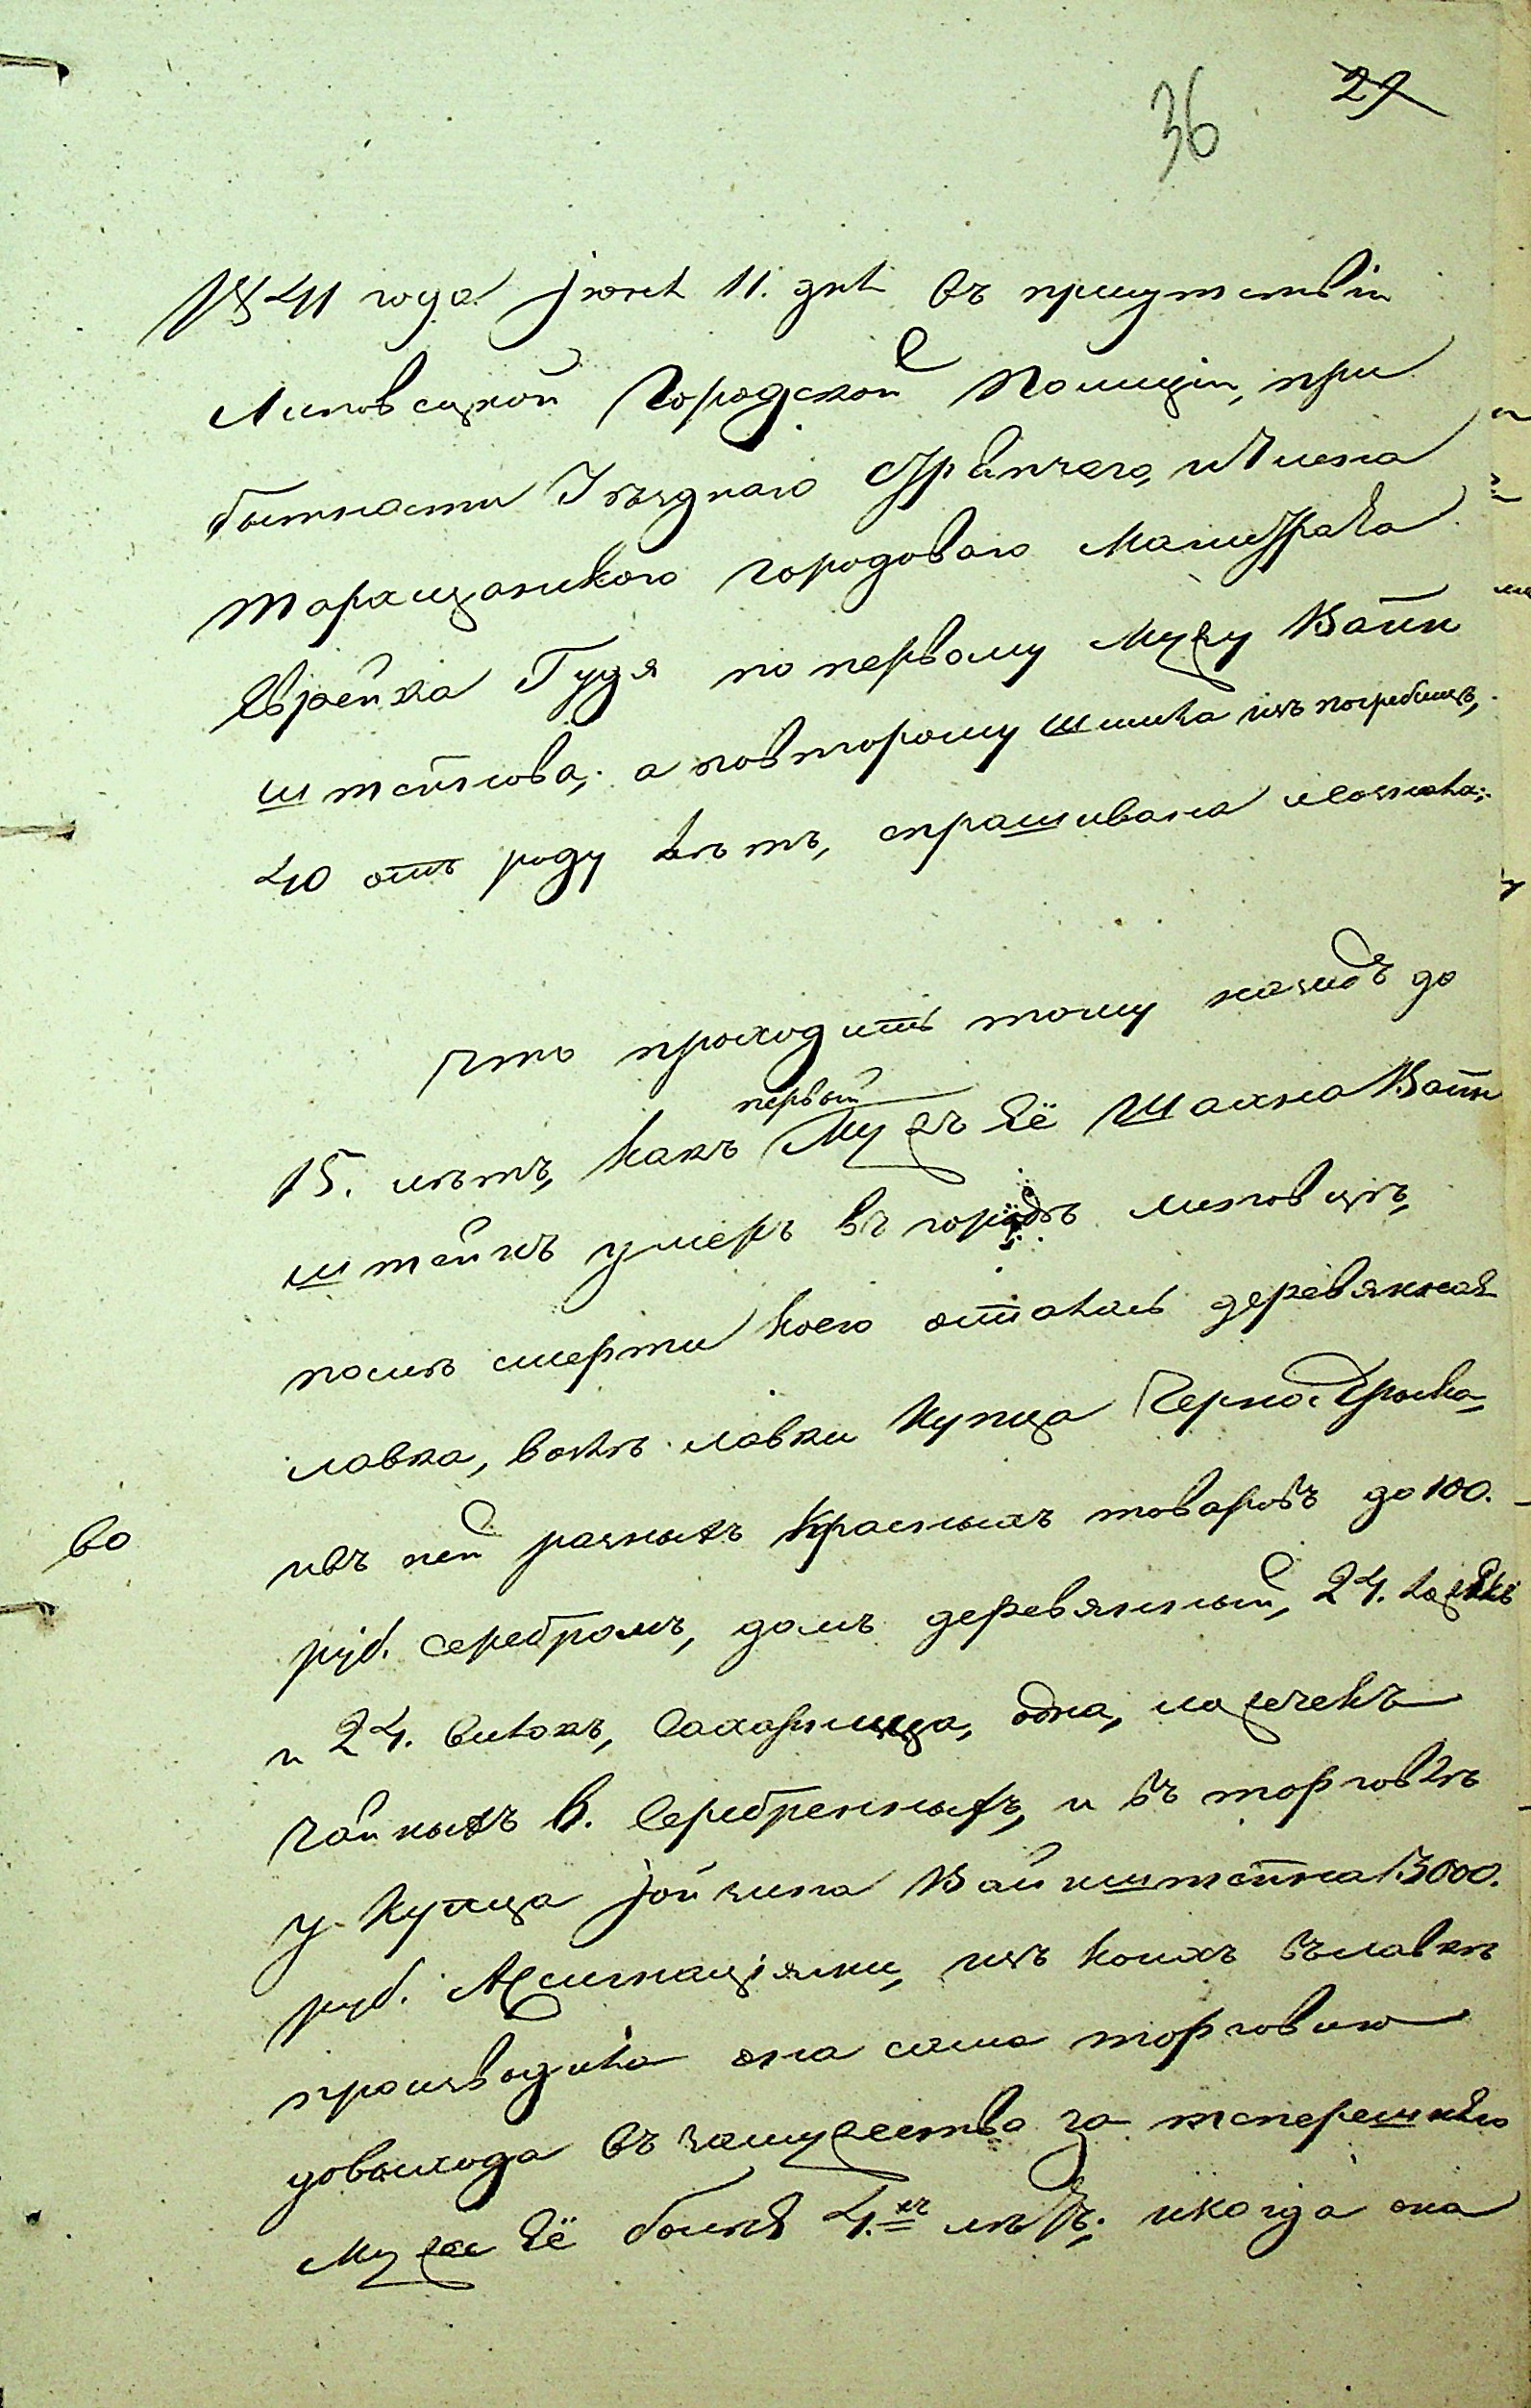 36 27
1841 года июня 11. дня въ присутствіи
Липовецкой Городской Полиціи, при
бытности Уѣзднаго Стряпчего, и Члена
Таращанского городоваго Магистрата
Еврейка Гудя по первому Мужу Вайн
штейнова, а повторому Шпика изъ погребищъ,
40 отъ роду лѣтъ, спрашивана и показала:
Что проходитъ тому назадъ до
15. лѣтъ, какъ первый Мужъ Её Шахна Вайн
штейнъ умеръ въ городѣ Липовцѣ,
послѣ смерти коего осталась деревянная
лавка, возлѣ лавки Купца
ивъ ней разныхъ Красныхъ товаровъ до 100.
во
руб. серебромъ, домъ деревянный, 24. ложекъ
и 24. вилокъ, Сахарница, одна, ложечекъ
чайныхъ 6. Серебренныхъ, и въ торговлѣ
у Купца Іойзипа Вайнштейна 13000.
руб. Ассигнаціями, изъ коихъ въ лавкѣ
производила она сама торговлю
довыхода въ замужество за теперешнего
Мужа Её болея 4.хъ лѣтъ; икогда она